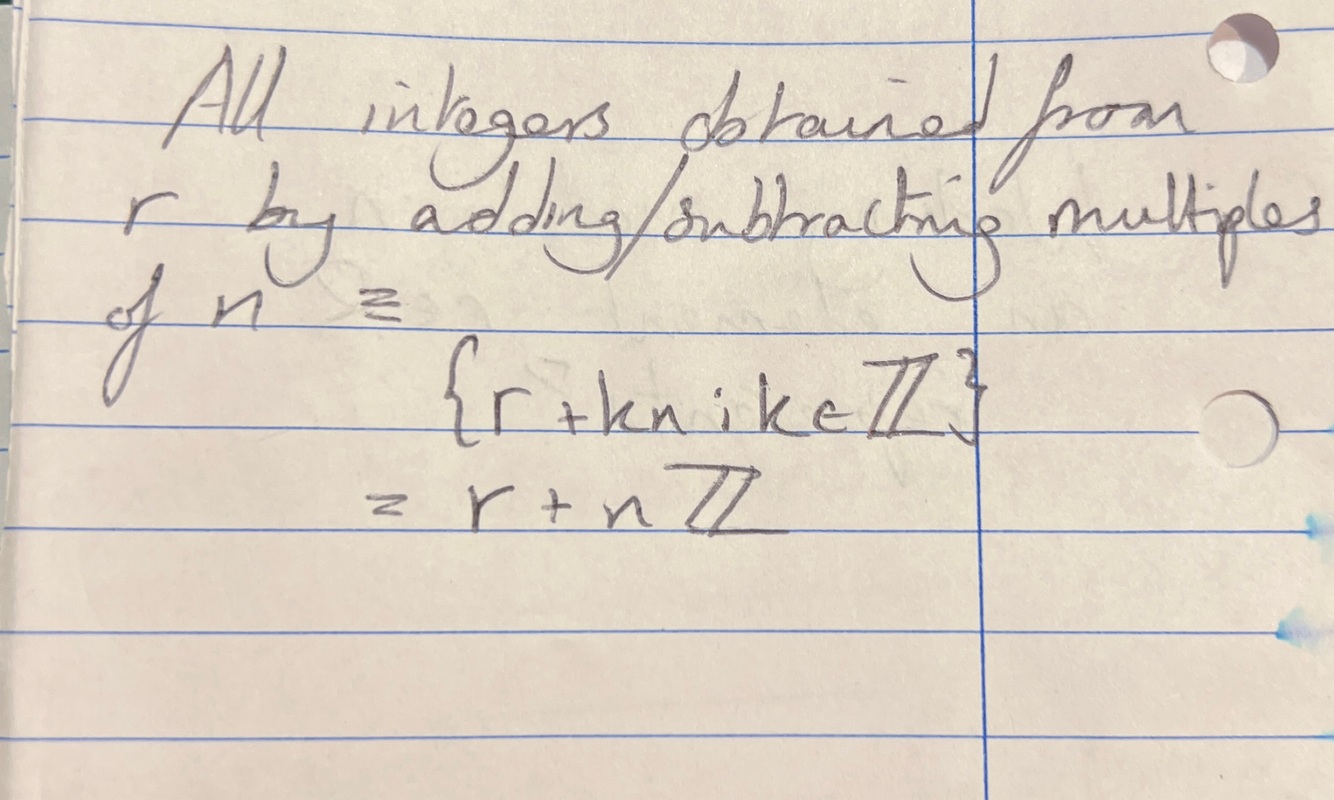 All integers obtained from
r by adding/subtracting multiples
of n ≡
{r + kn ; k ∈ ℤ}
= r + nℤ